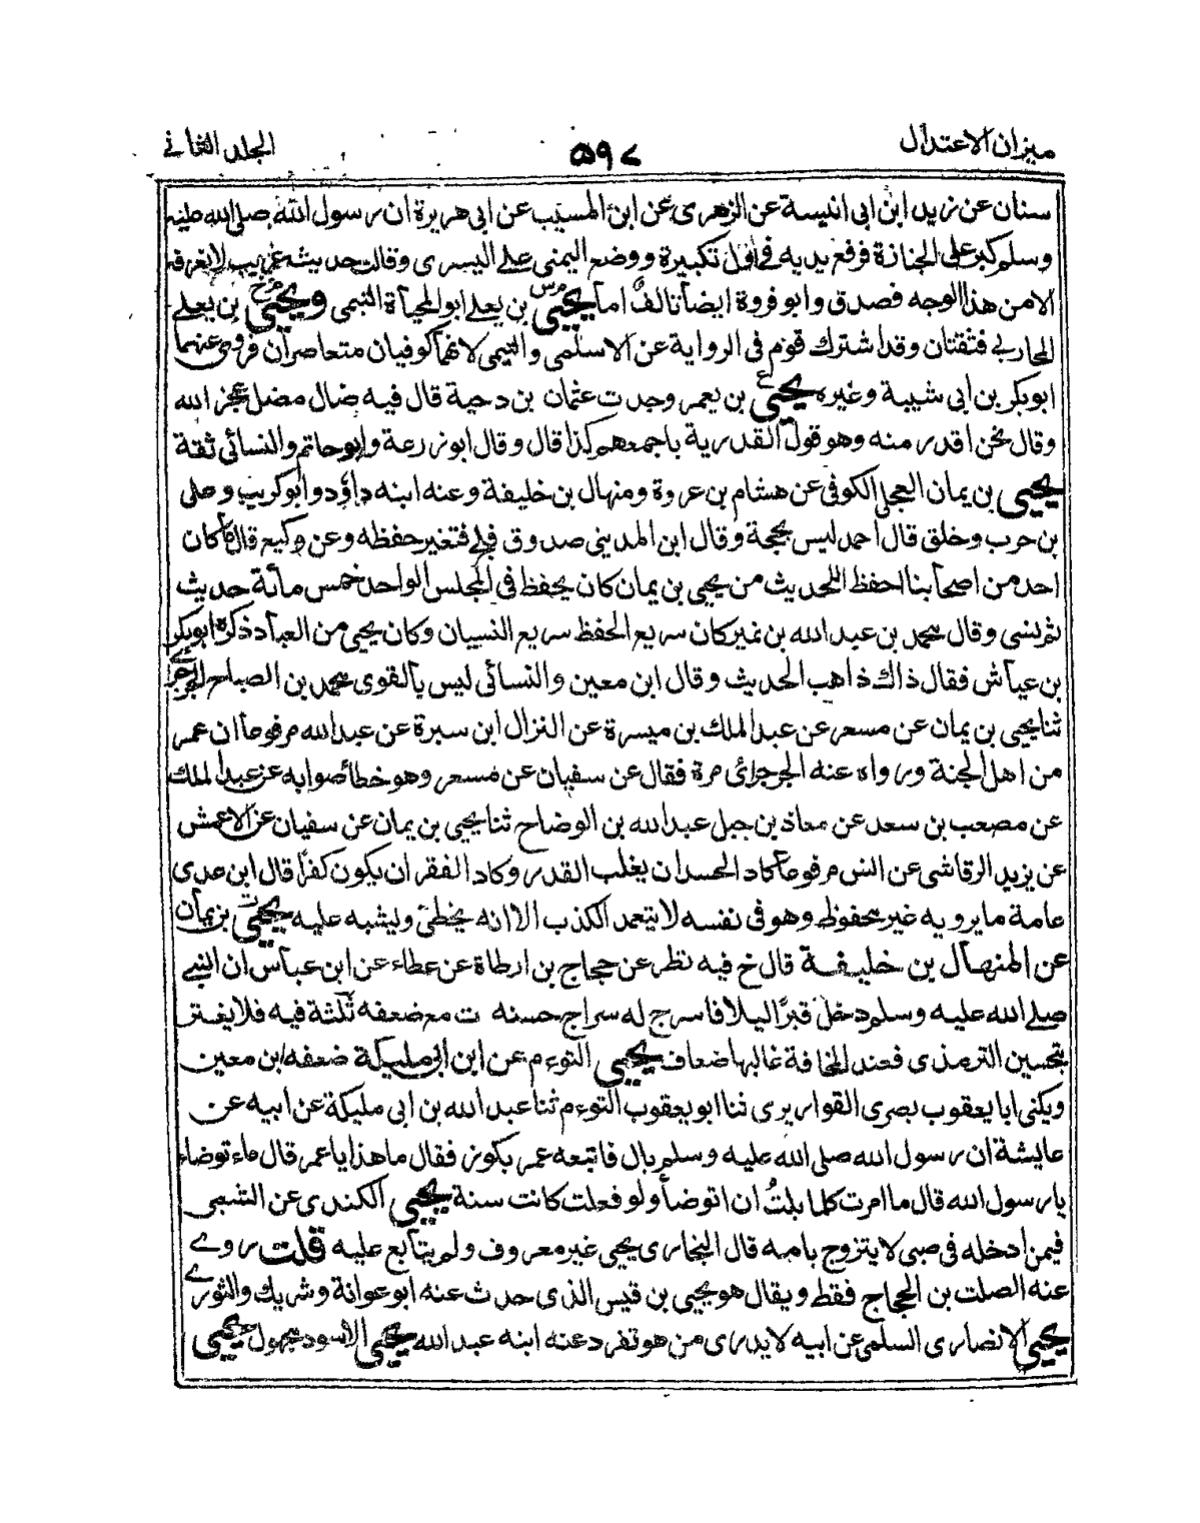 ميزان الاعتدال ٥٩٧ الجلد الثاني
سنان عن زيد ابن ابى انيسة عن الزهرى عن ابن المسيب عن ابى هريرة ان رسول الله صلى الله عليه
وسلم كبر على الجنازة فرفع يديه فى اول تكبيرة ووضع اليمنى على اليسرى وقالت حديثه غريب لا نعرفه
الا من هذا الوجه فصدق وابو فروة ايضا تالف اما يحيى بن يعلى ابو المحياة التيمى ويحيى بن يعلے
المحاربي فثقتان وقد اشترك قوم فى الرواية عن الاسلمى والتيمى لانهما كوفيان متعاصران فروى عنهما
ابو بكر بن ابى شيبة وغيره يحيى بن يعمر وجدت عثمان بن دحية قال فيه ضال مضل عجز الله
وقال نحن اقدر منه وهو قول القدرية باجمعهم كذا قال وقال ابو زرعة وابو حاتم والنسائى ثقة
يحيى بن يمان العجلى الكوفى عن هشام بن عروة ومنهال بن خليفة وعنه ابنه داؤد وابو كريب وعلى
بن حرب وخلق قال احمد ليس بحجة وقال ابن المدينى صدوق فلج فتغير حفظه وعن وكيع قال ما كان
احد من اصحابنا احفظ للحديث من يحيى بن يمان كان يحفظ فى المجلس الواحد خمس مائة حديث
ثم نسى وقال محمد بن عبد الله بن نمير كان سريع الحفظ سريع النسيان وكان يحيى من العباد ذكره ابو بكر
بن عياش فقال ذاك ذاهب الحديث وقال ابن معين والنسائى ليس بالقوى محمد بن الصباح الجرجرائے
ثنا يحيى بن يمان عن مسعر عن عبد الملك بن ميسرة عن النزال ابن سبرة عن عبد الله مرفوعا ان عمر
من اهل الجنة ورواه عنه الجرجرائى مرة فقال عن سفيان عن مسعر وهو خطأ صوابه عن عبد الملك
عن مصعب بن سعد عن معاذ بن جبل عبد الله بن الوضاح ثنا يحيى بن يمان عن سفيان عن الاعمش
عن يزيد الرقاشى عن انس مرفوعا كاد الحسد ان يغلب القدر وكاد الفقر ان يكون كفرا قال ابن عدى
عامة ما يرويه غير محفوظ وهو فى نفسه لا يتعمد الكذب الا انه يخطئ ويشبه عليه يحيى بن يمان
عن المنهال بن خليفة قال خ فيه نظر عن حجاج بن ارطاة عن عطاء عن ابن عباس ان النبي
صلے الله عليه وسلم دخل قبرًا ليلا فاسرج له سراج حسنه ت مع ضعفه ثلثة فيه فلا يغتر
بتحسين الترمذى فعند المحاقة غالبها ضعاف يحيى التوءم عن ابن ابى مليكة ضعفه ابن معين
ويكنى ابا يعقوب بصرى القواريرى ثنا ابو يعقوب التوءم ثنا عبد الله بن ابى مليكة عن ابيه عن
عايشة ان رسول الله صلى الله عليه وسلم بال فاتبعه عمر بكوز فقال ما هذا يا عمر قال ماء توضاء
يا رسول الله قال ما امرت كلما بلتُ ان اتوضأ ولو فعلت كانت سنة يحيى الكندى عن الشعبى
فيمن ادخله فى صبى لا يتزوج بامه قال البخارى يحيى غير معروف ولم يتابع عليه قلت روے
عنه الصلت بن الحجاج فقط ويقال هو يحيى بن قيس الذى حدث عنه ابو عوانة وشريك والثورے
يحيى الانصارى السلمى عن ابيه لا يدرى من هو تفرد عنه ابنه عبد الله يحيى الاسود مجهول يحيى